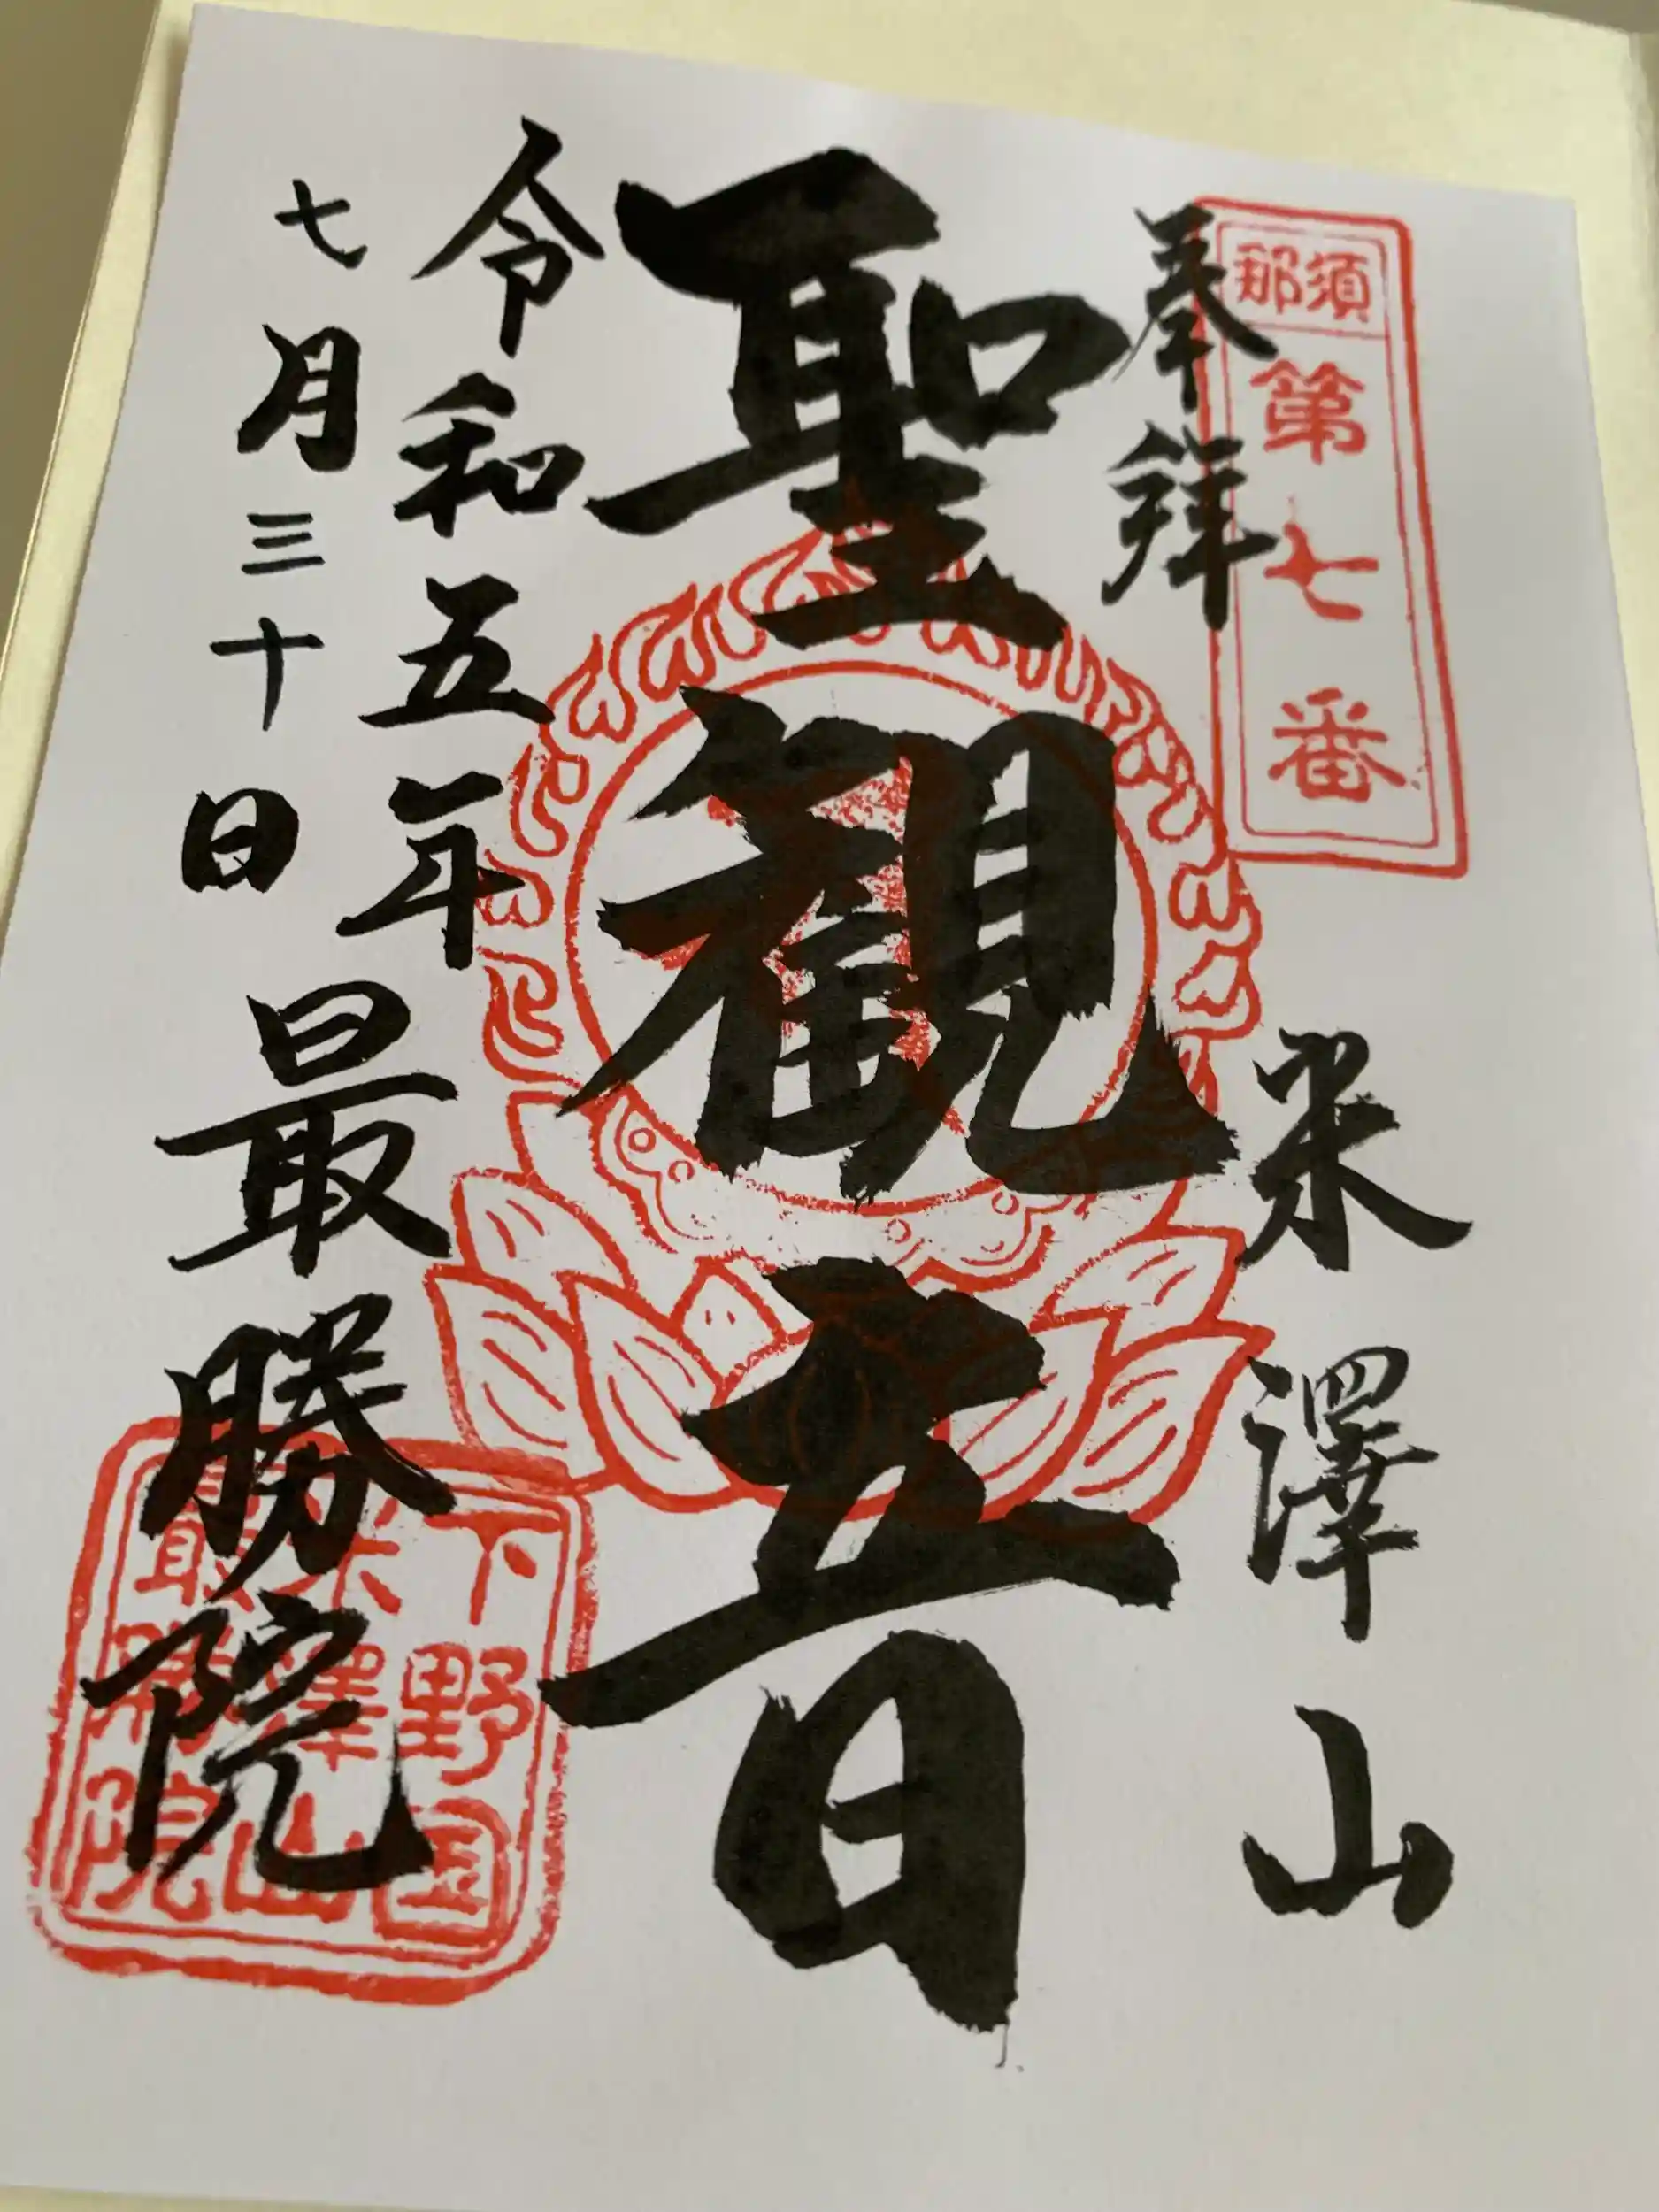 那須
第七番
奉拜
米澤山
聖観音
令和五年
七月三十日
最勝院
下野国
米澤山
最勝院